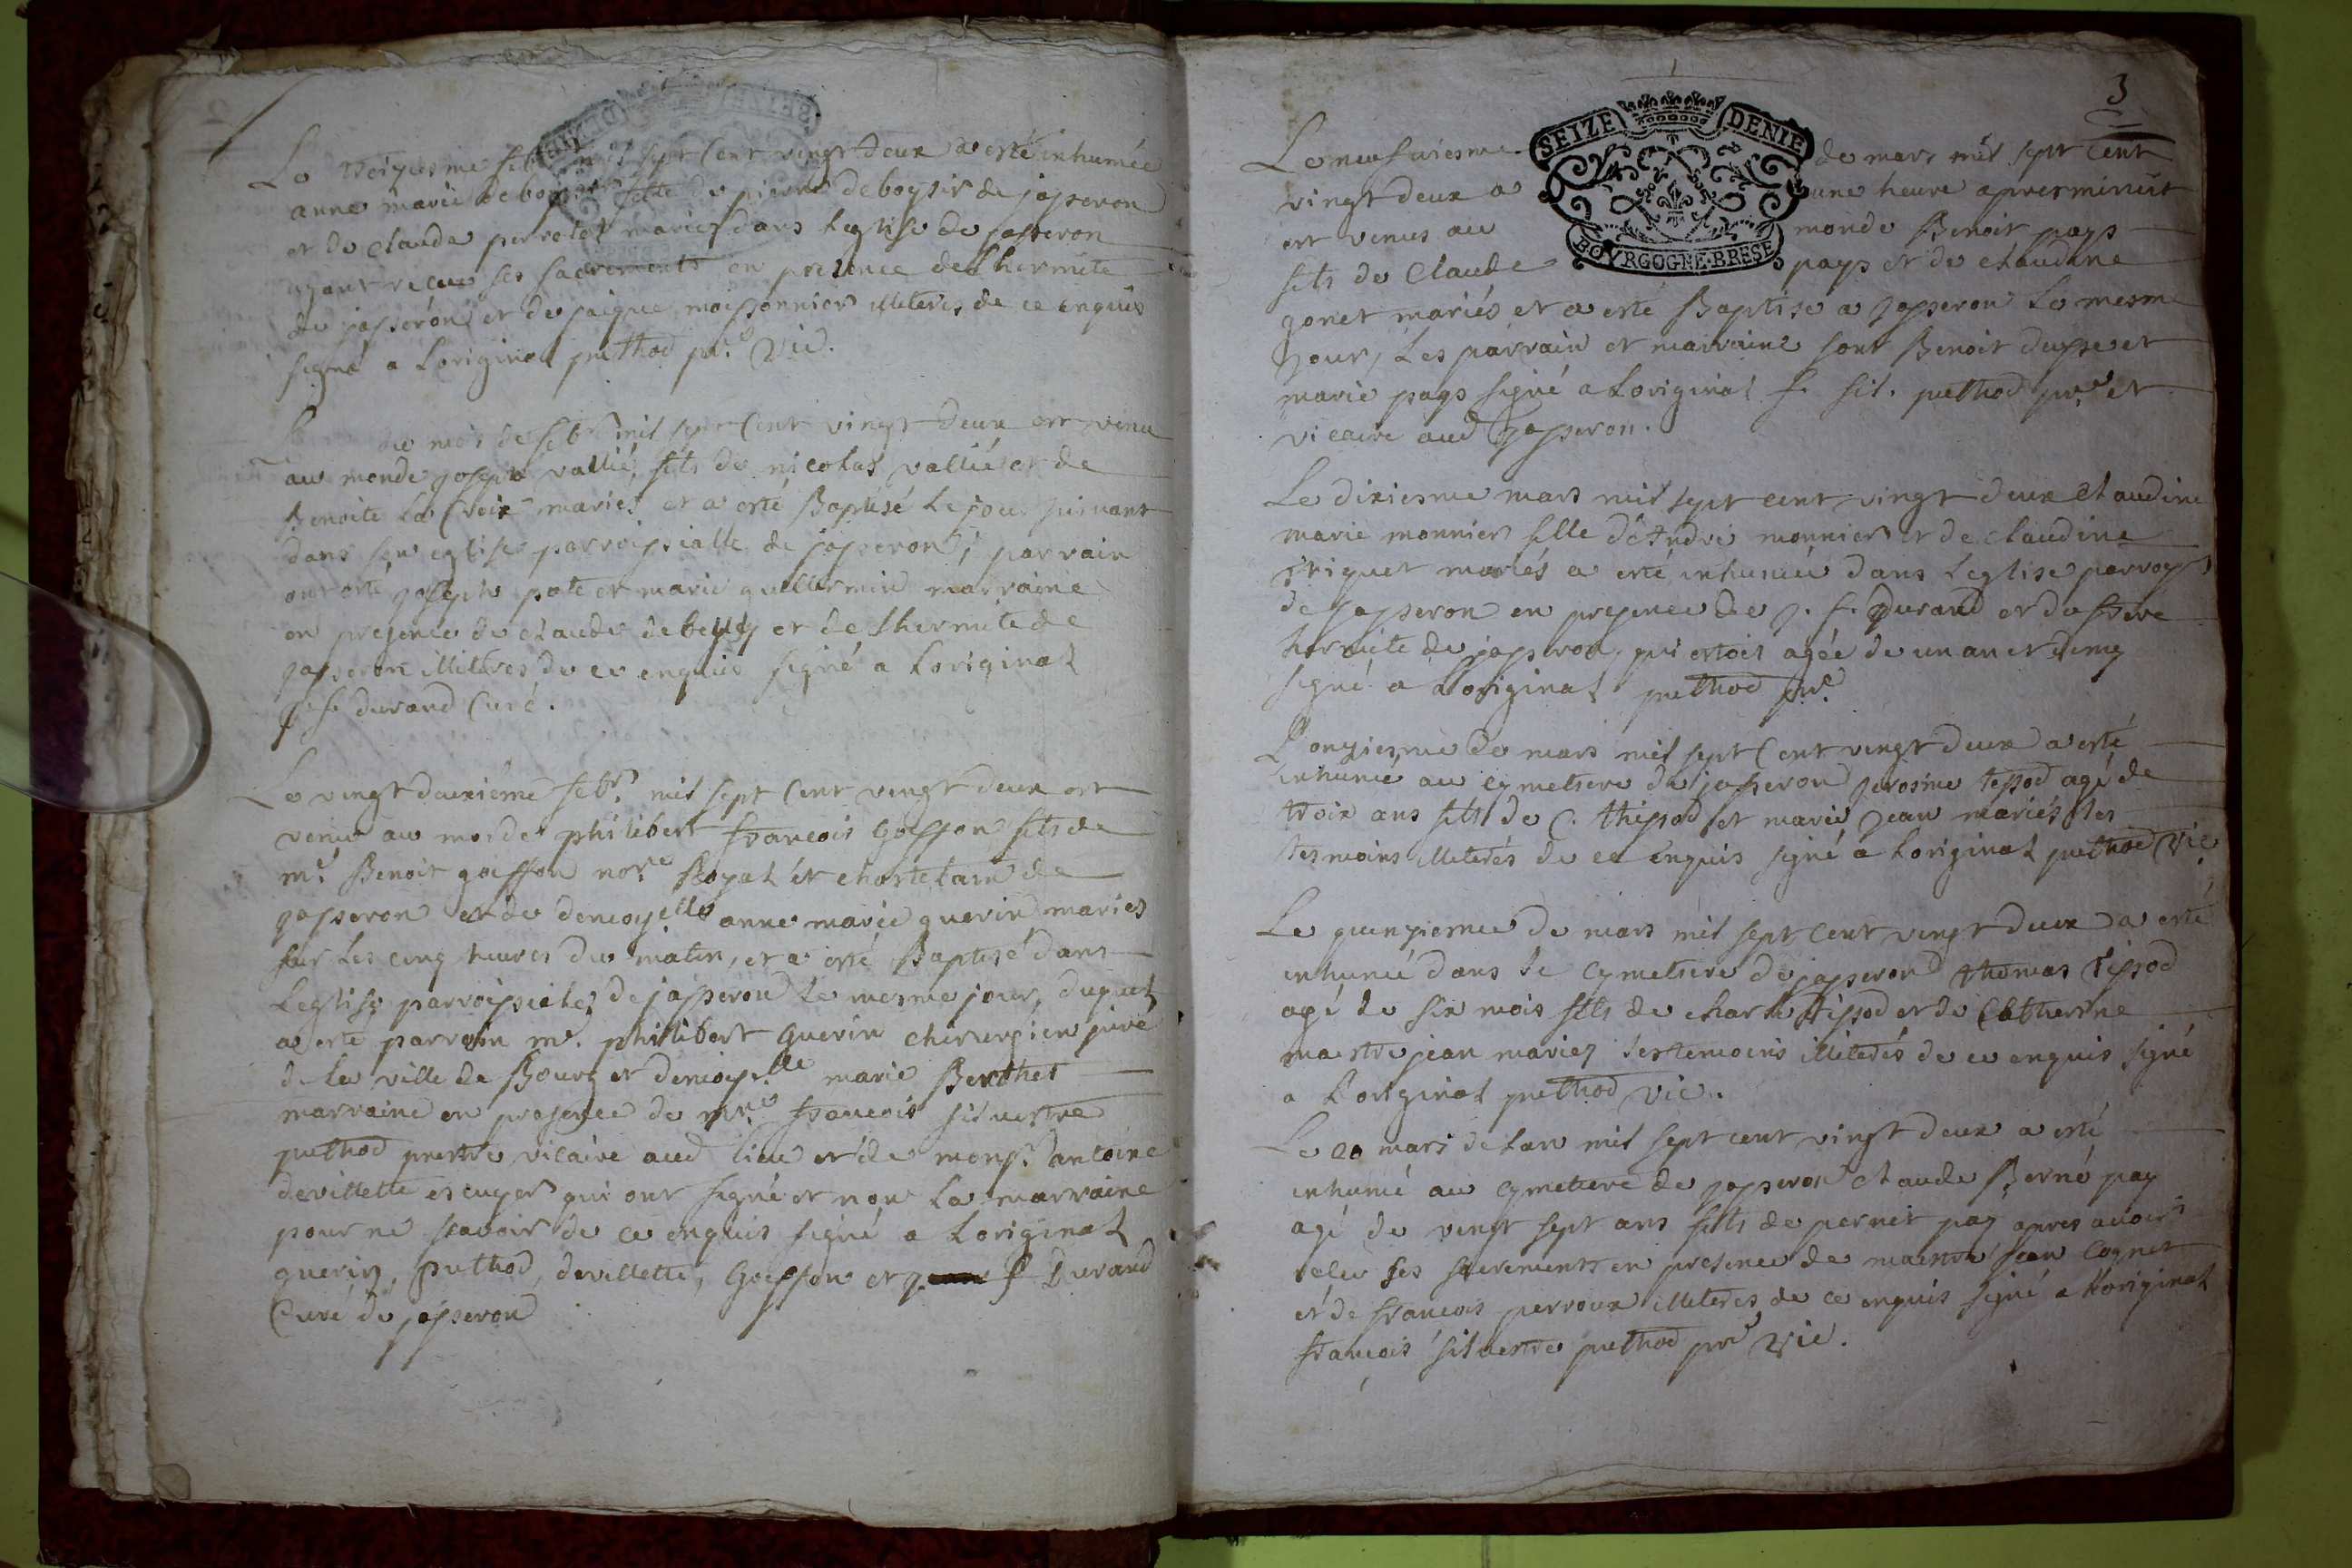 Le treiziesme feb. mil sept Cent vingt deux a esté inhumée
anne marie deboysir fille de pierre deboysir de japseron
et de claude perrolet mariez dans L'eglise de japseron
ayant receu ses sacrements en presence de Lhermite
de japseron et de moissonnier illiteres de ce enquis
signé a Loriginal puthod ptre Vic.
du mois de febr. mil sept Cent vingt deux est venu
au monde joseph vallié, fils de nicolas vallié et de
Benoite La Croix mariés et a esté Baptisé le jour suivant
dans son eglise parroipsialle de japseron, parrain
ont esté joseph pate et marie guillermin marraine
en presence de claude debeyly et de Lhermite de
japseron illiteres de ce enquis signé a Loriginal
j. f. durand Curé.
Le vingt deuxième febr. mil sept Cent vingt deux est
venu au monde philibert francois Goiffon fils de
mr. Benoit goiffon nore. Royal et chastelain de
japseron et de demoyselle anne marie guerin mariés
sur Les cinq heures du matin, et a esté Baptisé dans
Leglise parroipsiales de japseron le mesme jour, duquel
a esté parrain mr. philibert Guerin chirurgien juré
de la ville de Bourg et demoyselle marie Berthet
marraine en presence de mre. francois silvestre
puthod prestre vicaire aud lieu et de monsr. antoine
devillette escuyer qui ont signé et non La marraine
pour ne scavoir de ce enquis signé a Loriginal
guerin, puthod, devillette, Goiffon et j. f Durand
Curé de japseron
3
SEIZE DENIE
BOVRGOGNE·BRESE
Le neufviesme de mars mil sept Cent
vingt deux a une heure apres minuit
est venus au monde Benoit pays
fils de Claude pays et de claudine
gonet mariés et a esté Baptisé a japseron Le mesme
jour, Les parrain et marraine sont Benoit dupse et
marie pays signé a Loriginal f. sil. puthod ptre et
vicaire aud japseron.
Le dixiesme mars mil sept cent vingt deux claudine
marie monnier fille d'Andre monnier et de claudine
mariés a esté inhumée dans Leglise parroys
de japseron en presence de j. f. Durand et du frere
hermite de japseron, qui estoit agée de un an et demy
signé a Loriginal puthod ptre
L'onziesme de mars mil sept Cent vingt deux a esté
inhumé au cymetiere de japseron jerosme tepsod agé de
troix ans fils de C. thipsod et marie jean mariés les
tesmoins illiterés de ce enquis signé a Loriginal puthod Vic
Le quinziesme de mars mil sept Cent vingt deux a esté
inhumé dans le cymetiere de japseron thomas tipsod
agé de six mois fils de charle tipsod et de Catherine
maistre jean mariez les temoins illiterés de ce enquis signé
a Loriginal puthod Vic.
Le 20 mars de Lan mil sept cent vingt deux a esté
inhumé au cymetiere de japseron claude Berné pay
agé de vingt sept ans fils de pernet pay apres avoir
receu ses sacrements en presence de maistre jean Cognet
et de francois perroux illiterés de ce enquis signé a Loriginal
francois silvestre puthod ptre Vic.